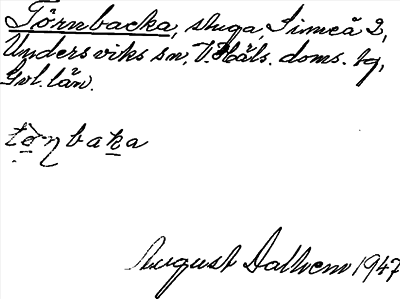 Törnbacka, stuga, Simeå 2,
Undersviks sn, V. Häls. doms. tg,
Gvl. län.
to̠ŋbak̠a
August Dalhem 1947